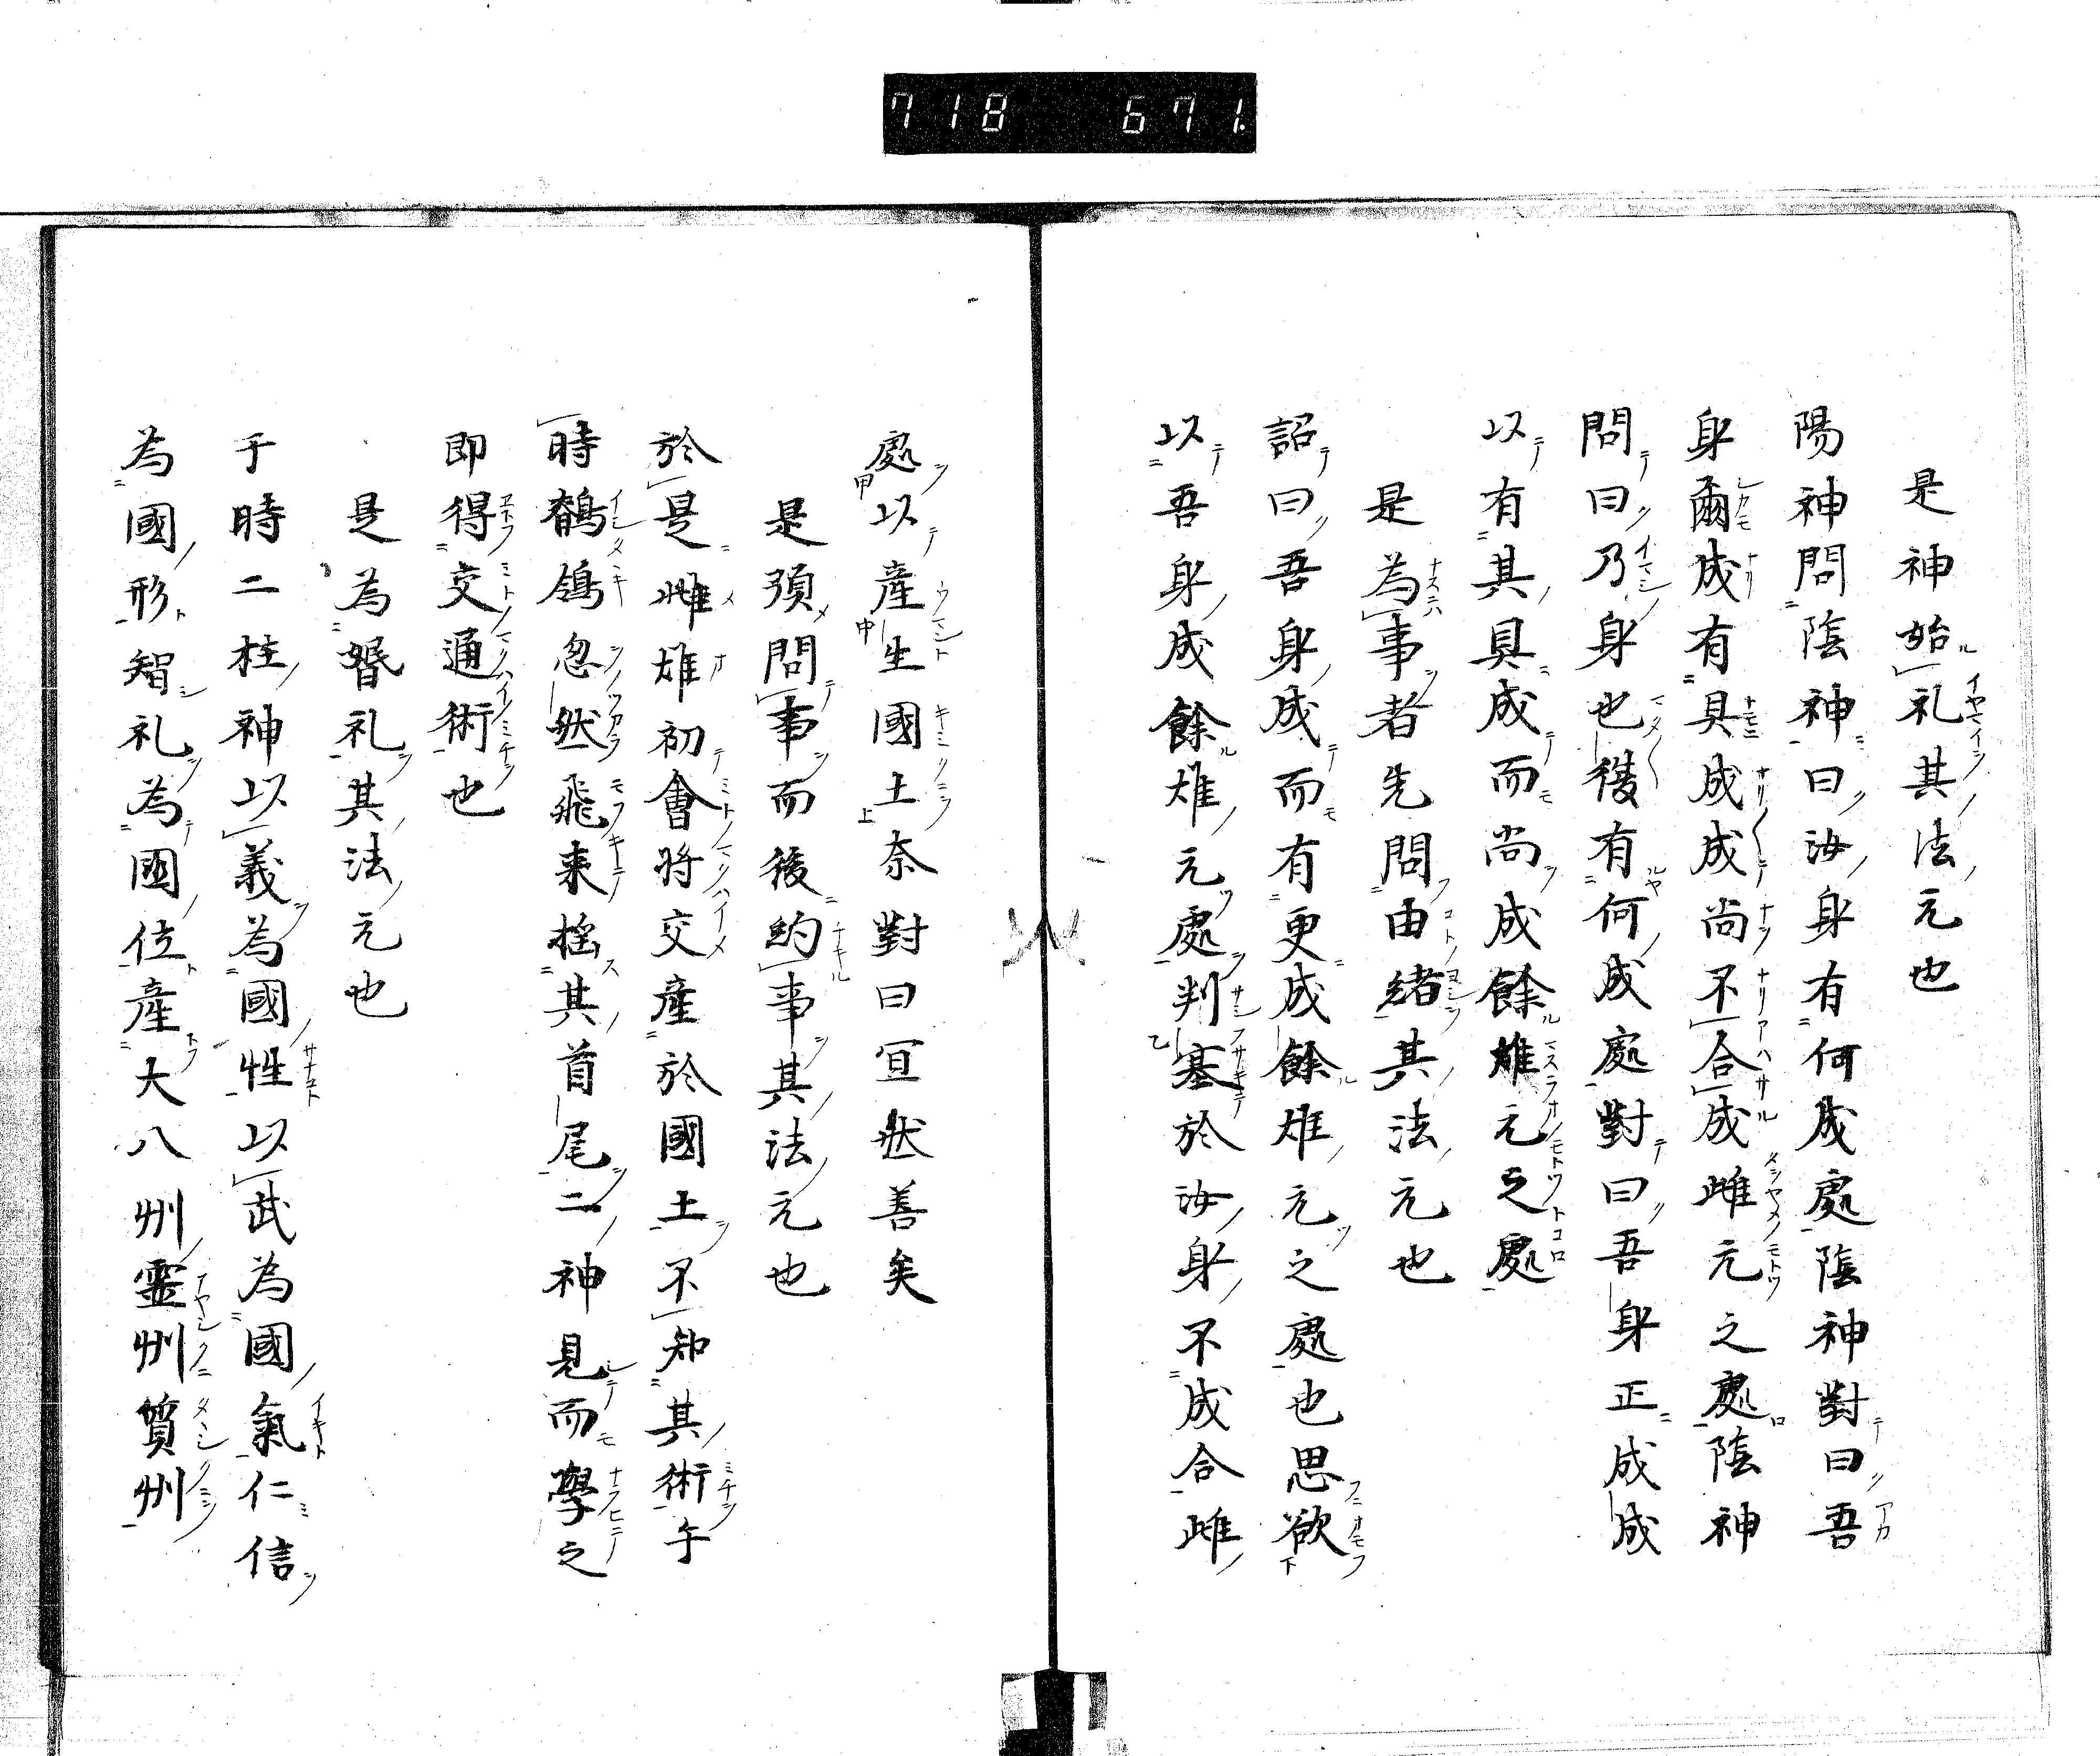 718 671.
是神始礼其法元也
陽神問陰神曰汝身有何成處陰神對曰吾
身爾成有具成成尚不合成雌元之處陰神
問曰乃身也復有何成處對曰吾身正成成
以有其具成而尚成餘雄元之處
是為事者先問由緒其法元也
詔曰吾身成而有更成餘雄元之處也思欲
以吾身成餘雄元處判塞於汝身不成合雌
處以產生國土奈對曰宜然善矣
是須問事而後約事其法元也
於是雌雄初會將交產於國土不知其術于
時鶺鴒忽然飛来搖其首尾二神見而學之
即得交通術也
是為婚礼其法元也
于時二柱神以義為國性以武為國氣仁信
為國形智礼為國位產大八州靈州質州